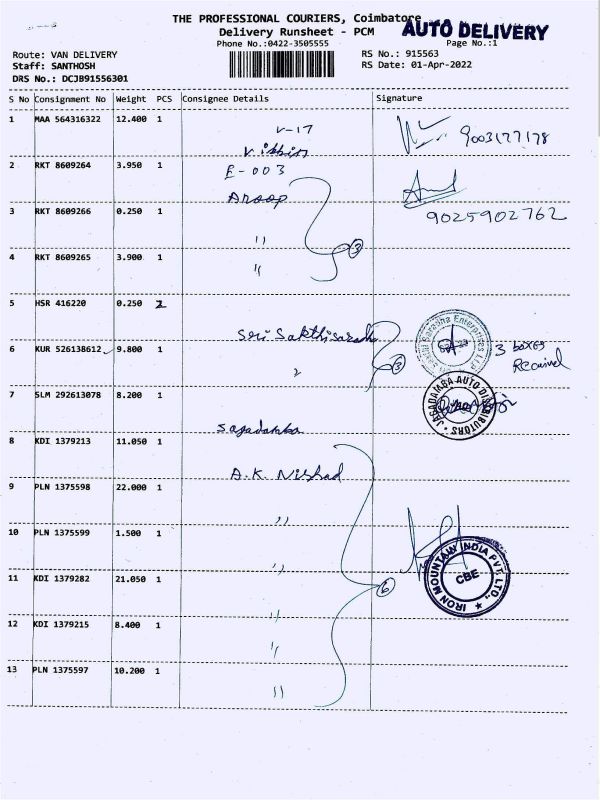 THE PROFESSIONAL COURIERS, Coimbatore
AUTO DELIVERY
Delivery Runsheet - PCM
Phone No.:0422-3505555
Page No.:1
Route: VAN DELIVERY
RS No.: 915563
Staff: SANTHOSH
RS Date: 01-Apr-2022
DRS No.: DCJB91556301
S No Consignment No Weight PCS Consignee Details Signature
1 MAA 564316322 12.400 1
V-17
9003177178
2 RKT 8609264 3.950 1
E-003
Anoop
9025902762
3 RKT 8609266 0.250 1
"
3
4 RKT 8609265 3.900 1
"
5 HSR 416220 0.250 2
Sri Sakthi Saradha
6 KUR 526138612 9.800 1
3
3 boxes
Received
7 SLM 292613078 8.200 1
JAGADAMBA AUTO DISTRIBUTORS
8 KDI 1379213 11.050 1
A.K. Nishad
9 PLN 1375598 22.000 1
"
10 PLN 1375599 1.500 1
"
IRON MOUNTAIN INDIA PVT. LTD.,
CBE
11 KDI 1379282 21.050 1
6
"
12 KDI 1379215 8.400 1
"
13 PLN 1375597 10.200 1
"